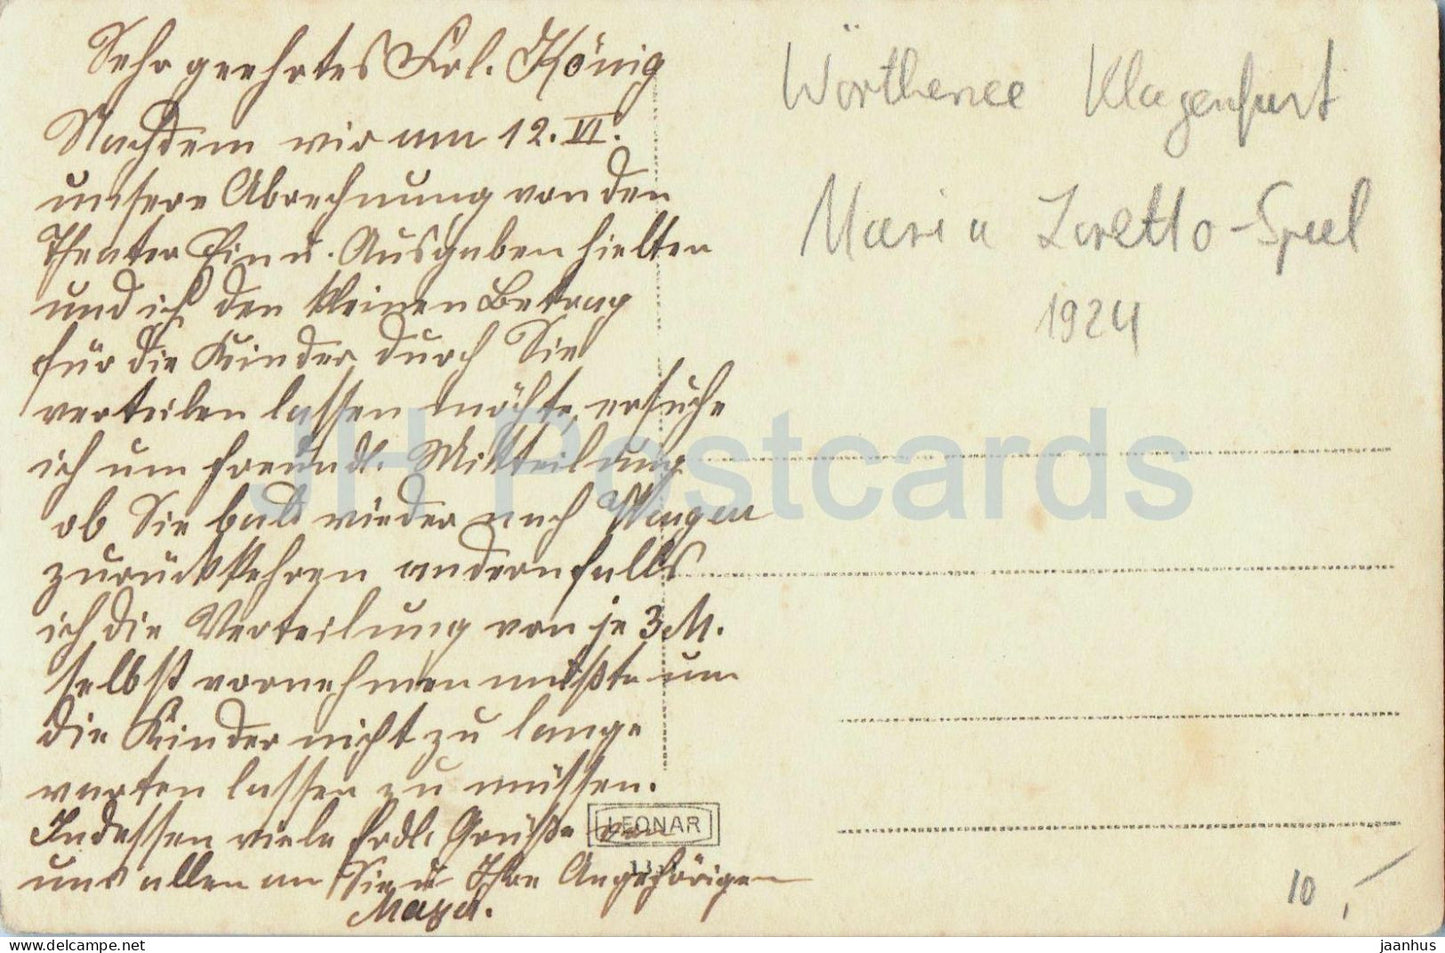 Sehr geehrtes Frl. König
Nachdem wir am 12. VI.
unsere Abrechnung von den
Theater Ein u. Ausgaben hielten
und ich den kleinen Betrag
für die Kinder durch Sie
verteilen lassen möchte, ersuche
ich um freundl. Mitteilung
ob Sie bald wieder nach
zurückkehren andernfalls
ich die Verteilung von je 3 M.
selbst vornehmen müßte um
die Kinder nicht zu lange
warten lassen zu müssen.
Indessen viele frdl. Grüße von
uns allen an Sie u Ihre Angehörigen
Wörthersee Klagenfurt
Maria Loretto-Spiel
1924
LEONAR
10,-
JH Postcards
jaanhus
www.hippostcard.com